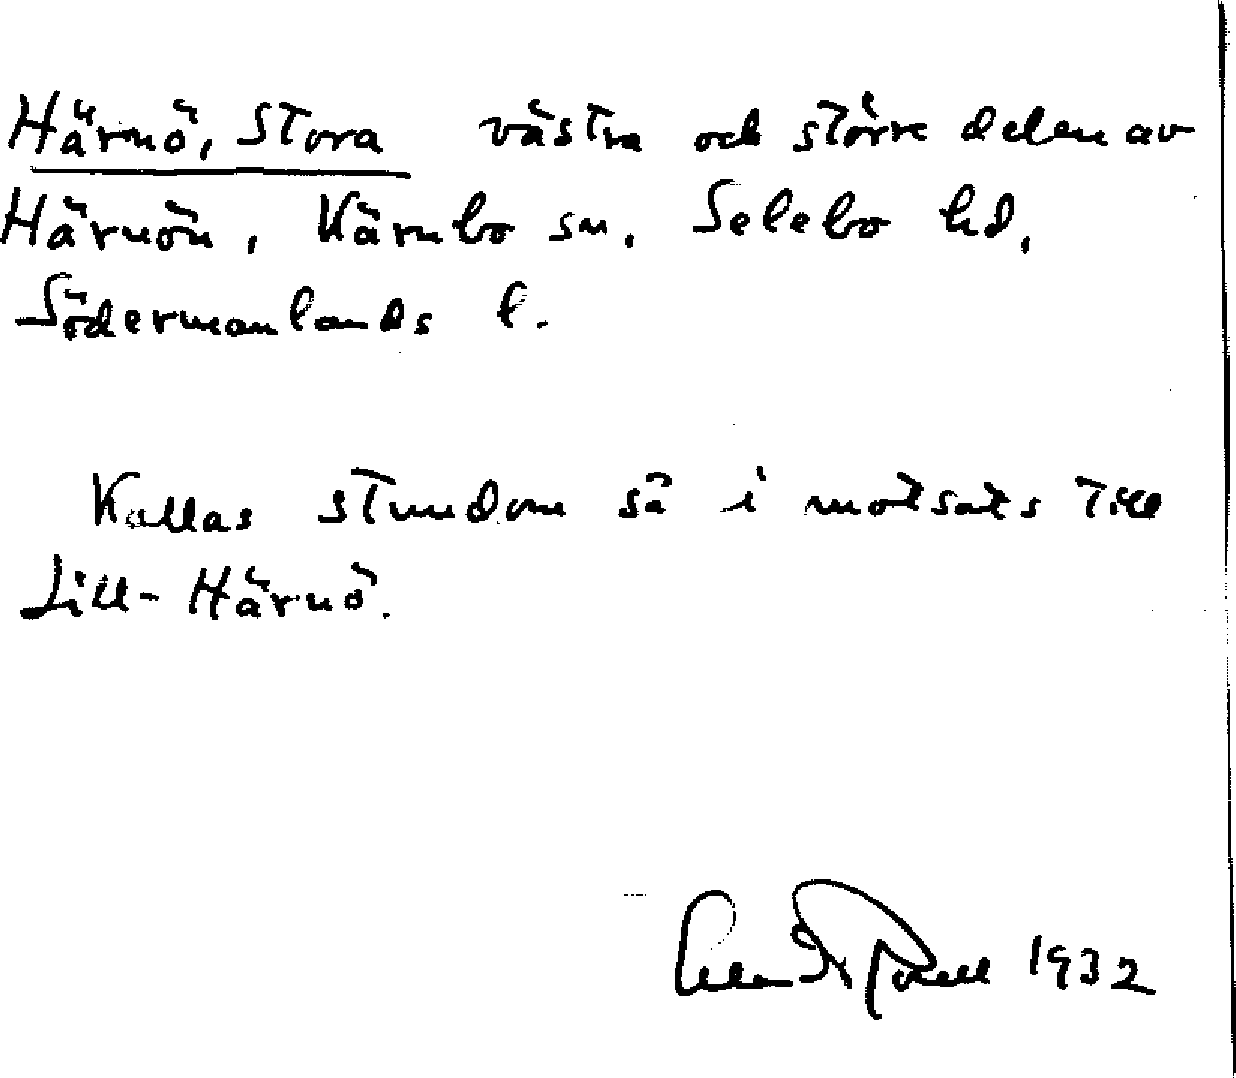 Härnö, Stora västra och större delen av
Härnön, Kärnbo sn, Selebo hd,
Södermanlands l.
Kallas stundom så i motsats till
Lill-Härnö.
1932